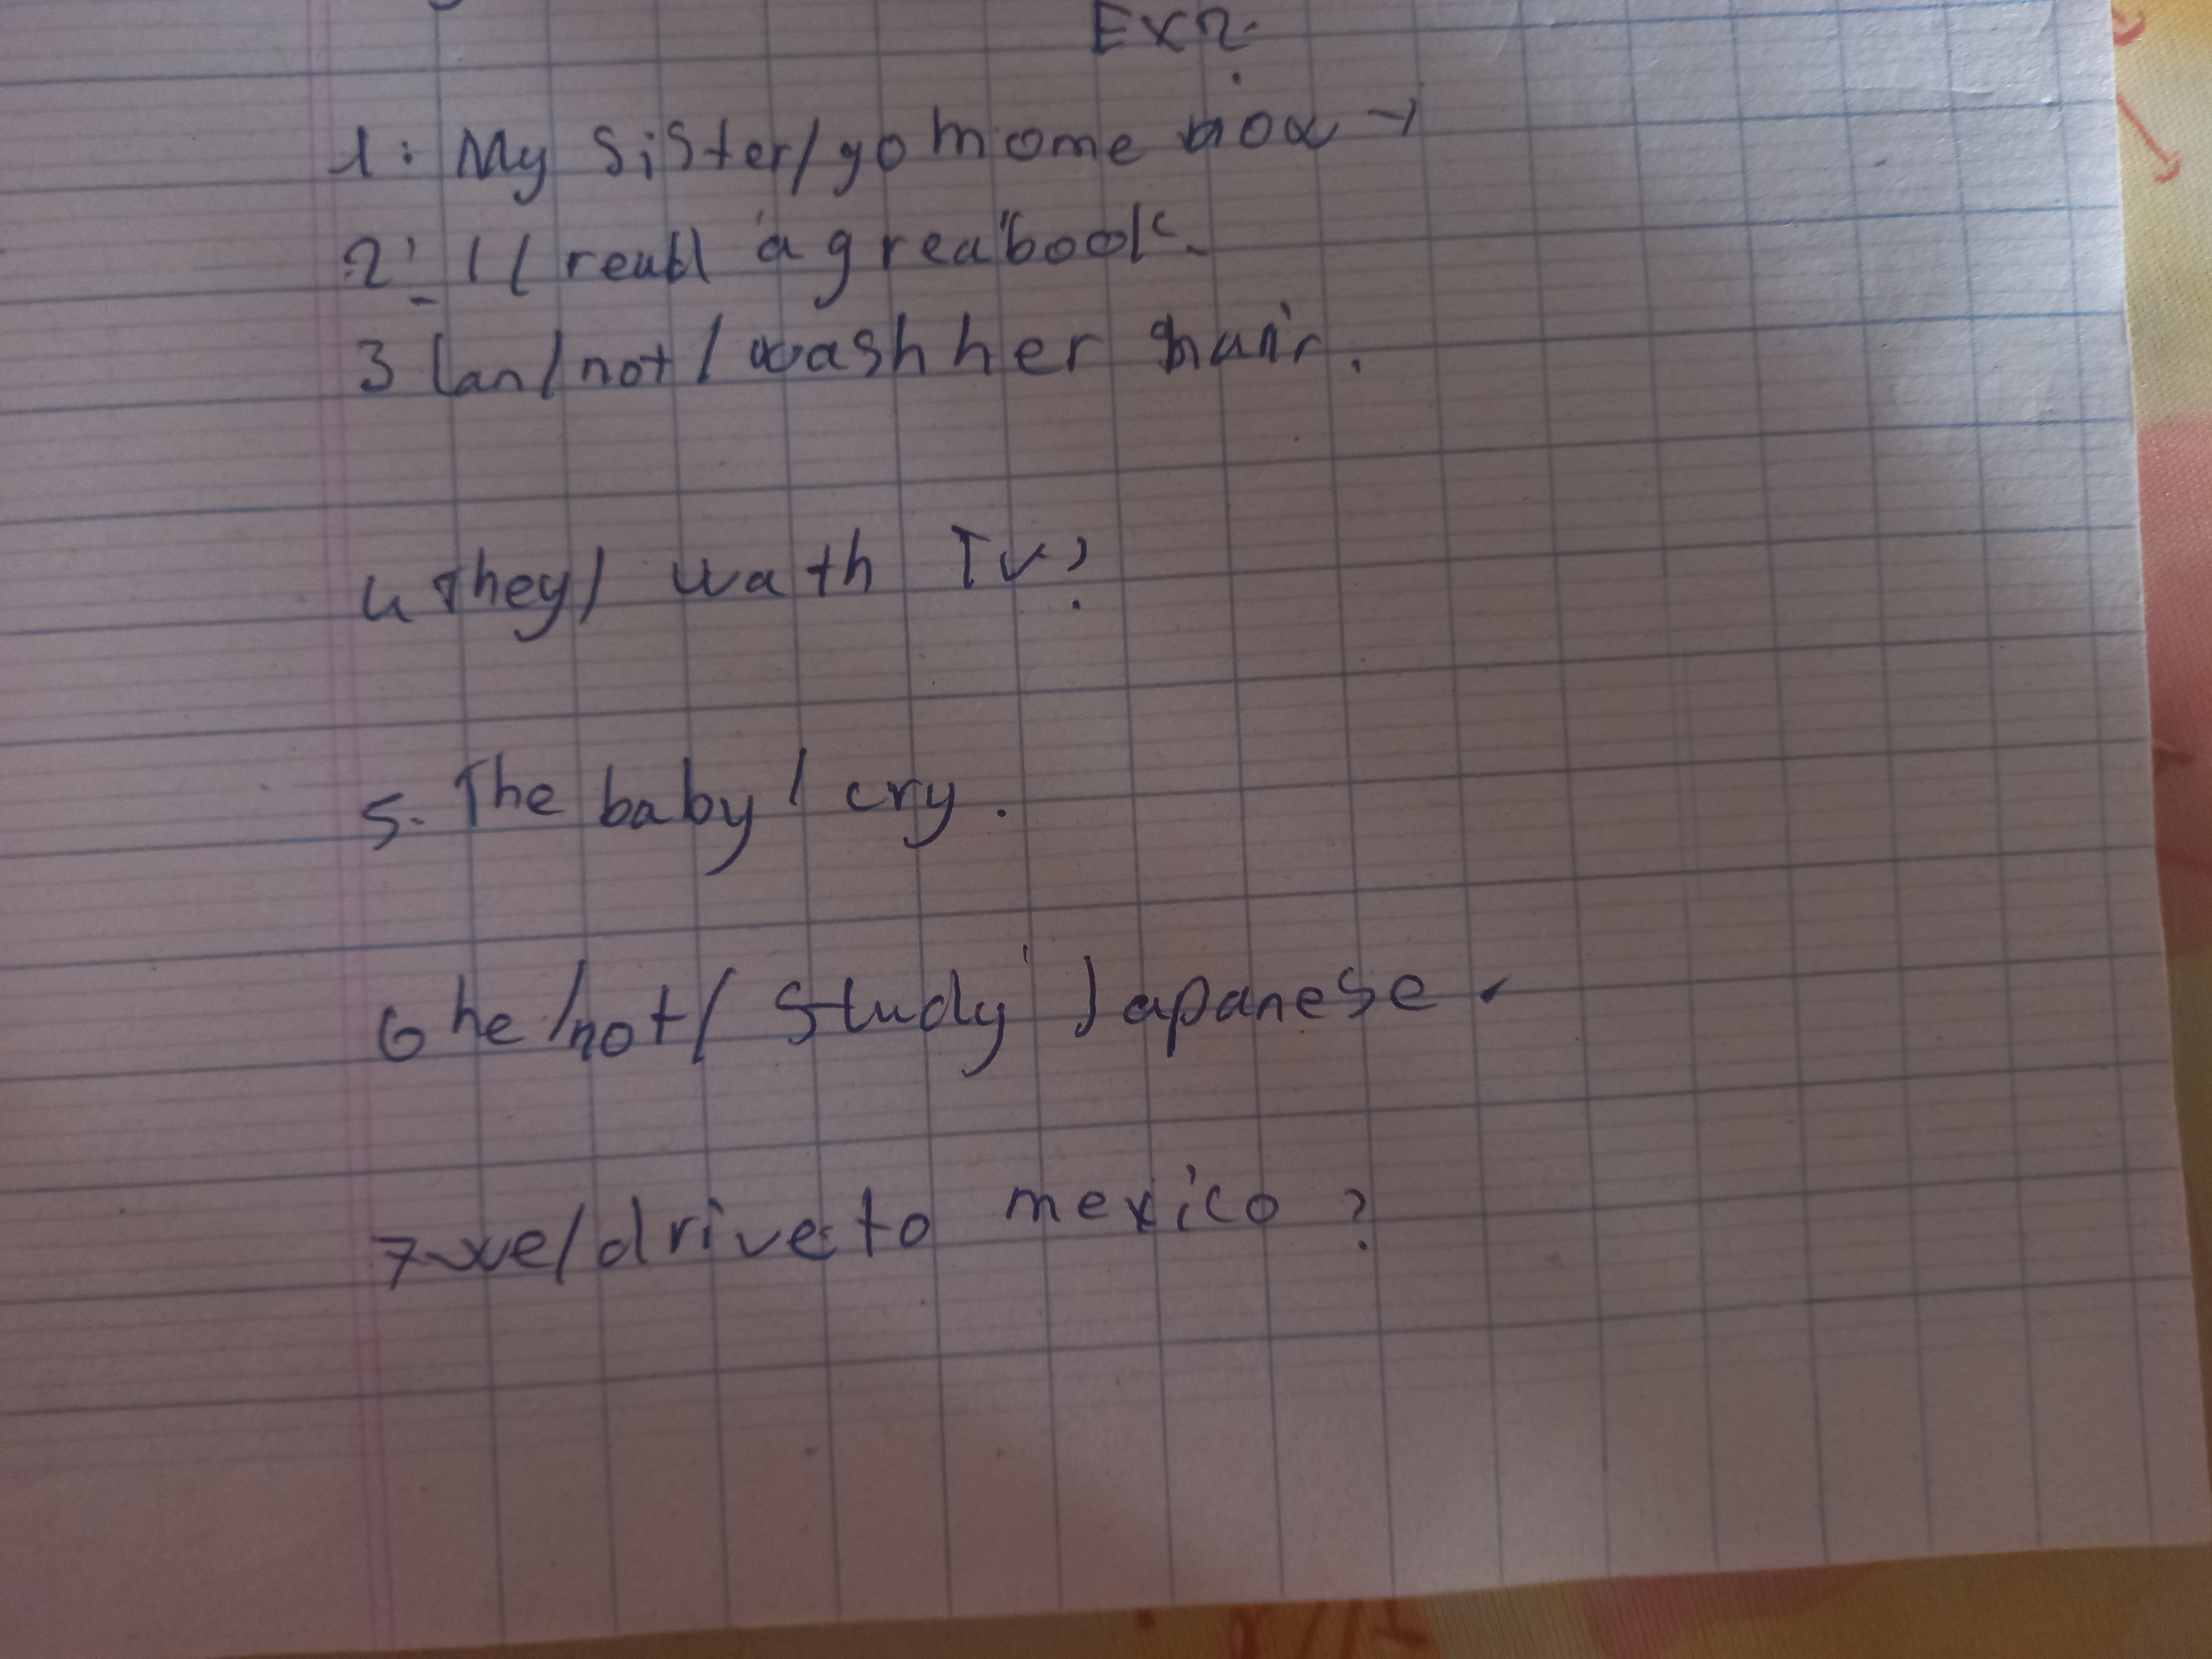 Ex2.
1: My Sister/go home now
2: I / read a grea book.
3 Ian/not/wash her hair.
4 They/ wath TV?
5. The baby / cry.
6 he/not/ Study Japanese.
7 we/drive to mexico ?